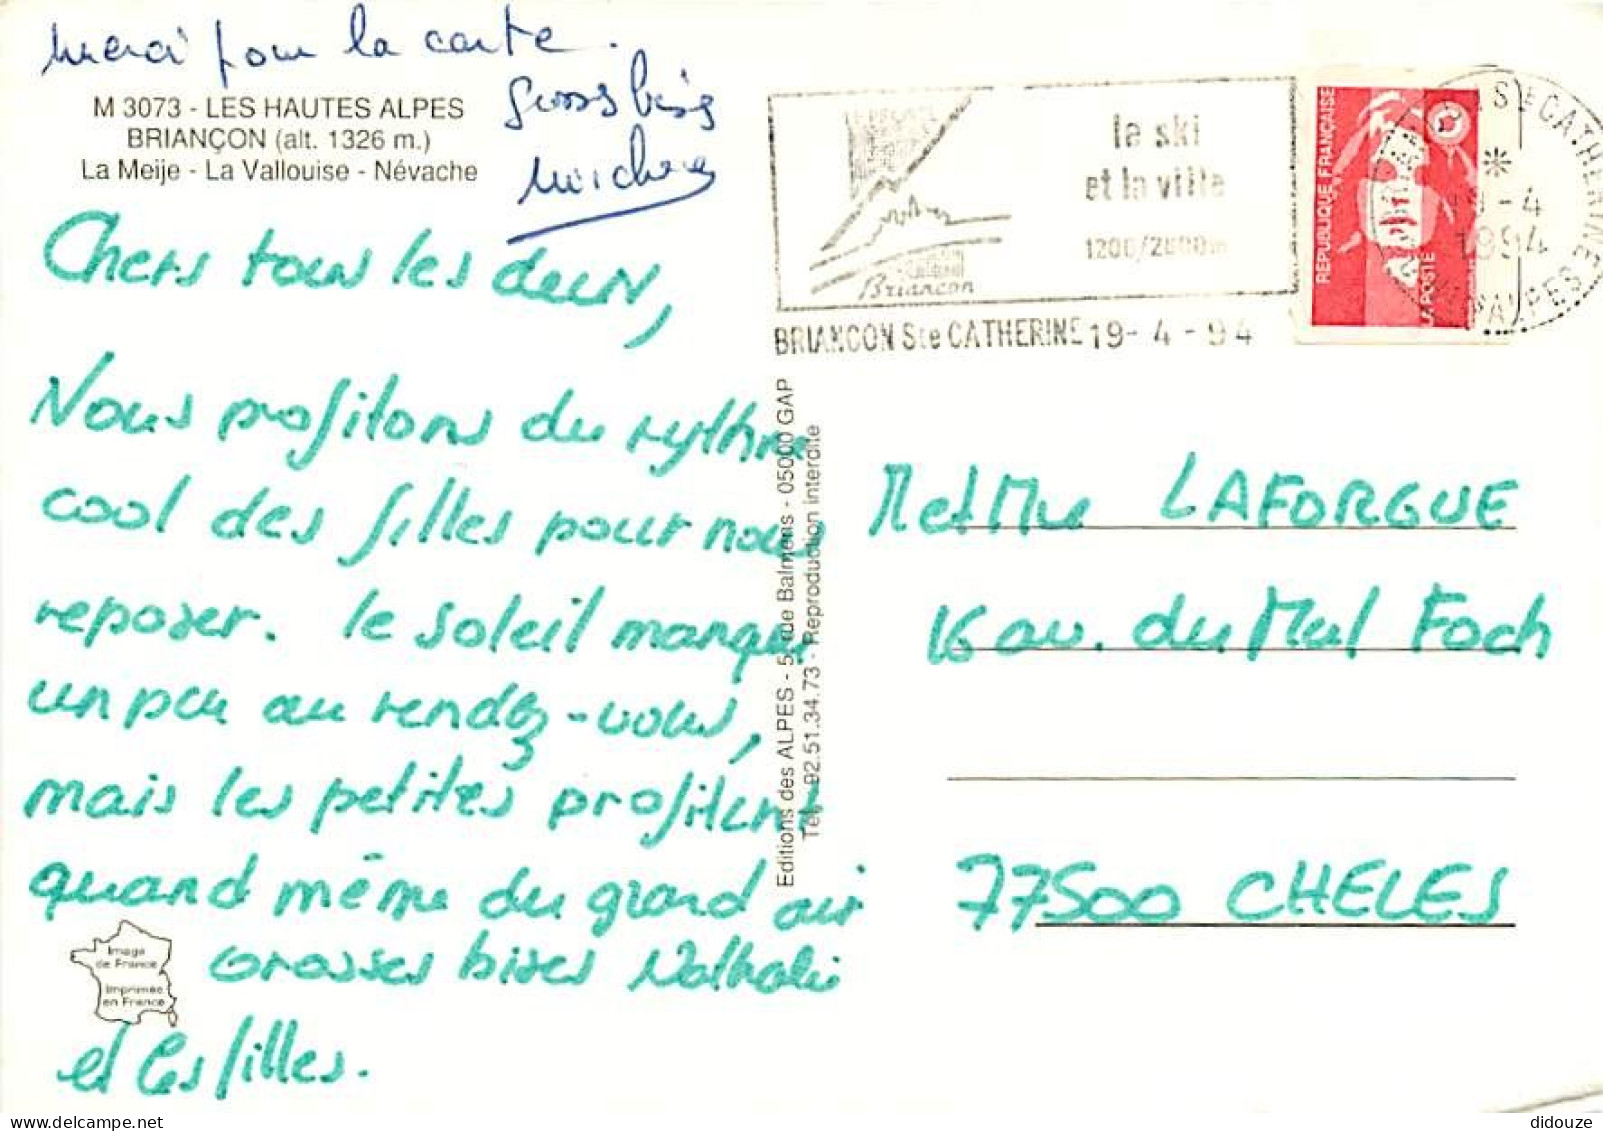 merci pour la carte.
M 3073 - LES HAUTES ALPES
BRIANÇON (alt. 1326 m.)
La Meije - La Vallouise - Névache
Grosses bises
Chers tous les deux,
Nous profitons du rythme
cool des filles pour nous
reposer. le soleil manque
un peu au rendez-vous,
mais les petites profitent
quand même du grand air
Grosses bises Nathalie
et les filles.
Image
de France
Imprimée
en France
Editions des ALPES - 5, rue Balmens - 05000 GAP
Tél. 92.51.34.73 - Reproduction interdite
le ski
et la ville
1200/2800m
Briançon
BRIANCON Ste CATHERINE 19-4-94
REPUBLIQUE FRANÇAISE
LA POSTE
Ste CATHERINE
19-4
1994
ALPES
M et Mme LAFORGUE
16 av. du Mal Foch
77500 CHELES
didouze